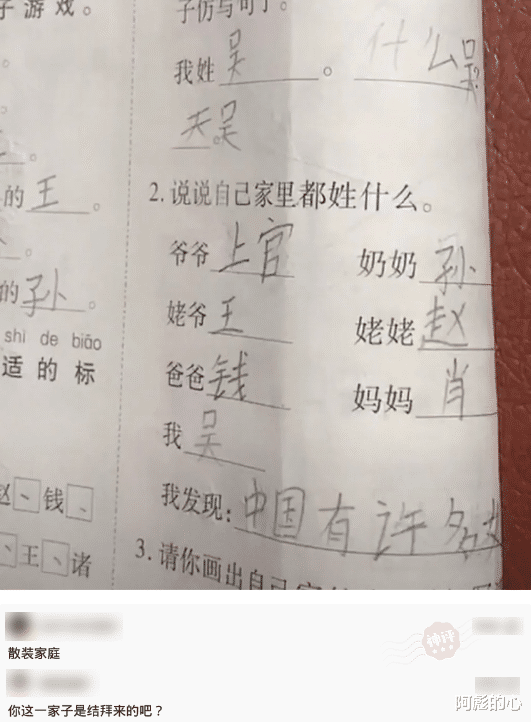 子游戏。
子仿写句子。
我姓吴。什么吴?
天吴
的王。
2. 说说自己家里都姓什么。
爷爷上官 奶奶孙
的孙。
姥爷王 姥姥赵
shì de biāo
适的标
爸爸钱 妈妈肖
我吴
赵、钱、
我发现:中国有许多
、王、诸
3. 请你画出自己家
神评
散装家庭
你这一家子是结拜来的吧？
阿彪的心